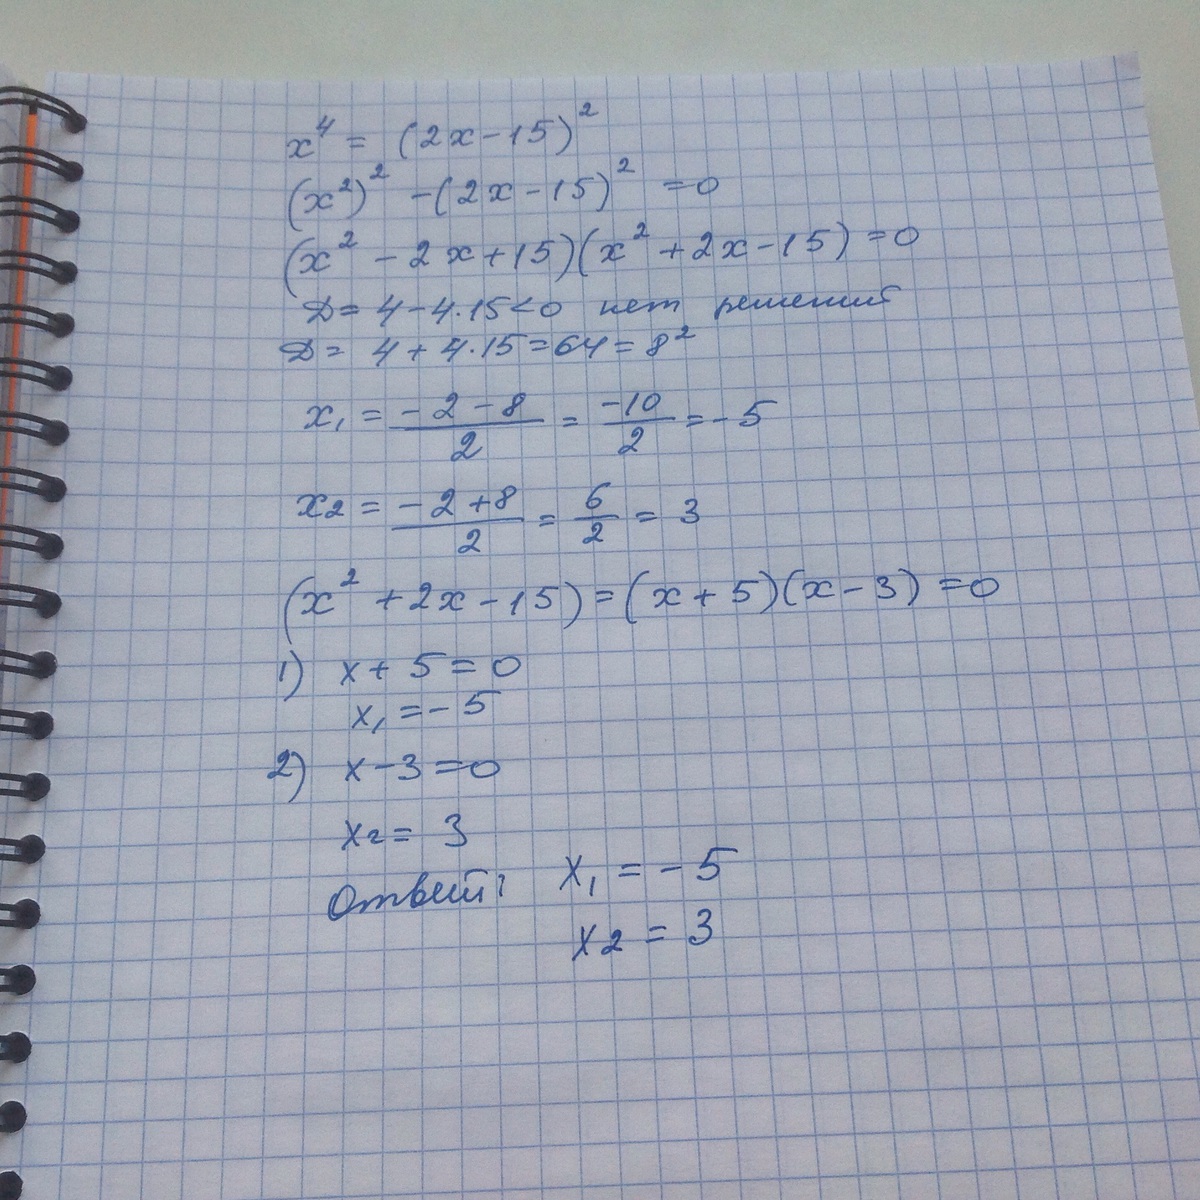 x⁴ = (2x-15)²
(x²)² -(2x-15)² =0
(x² - 2x+15)(x² +2x-15)=0
D= 4-4·15<0 нет решений
D= 4+4·15=64=8²
x₁ = (-2-8)/2 = -10/2 = -5
x₂ = (-2+8)/2 = 6/2 = 3
(x² +2x-15)=(x+5)(x-3)=0
1) x+5=0
x₁=-5
2) x-3=0
x₂= 3
Ответ: x₁ = -5
x₂ = 3